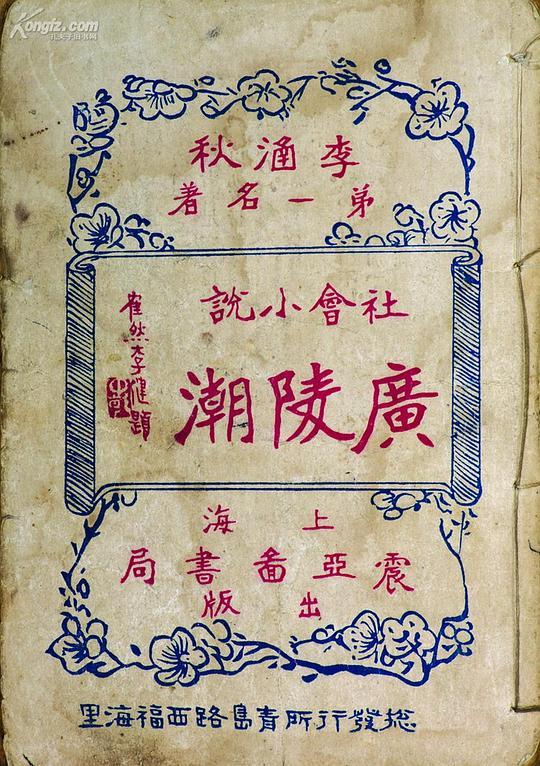 Kongfz.com
孔夫子旧书网
李涵秋
弟一名著
社會小說
廣陵潮
雀然李健題
上海
震亞啚書局
出版
總發行所青島路西福海里